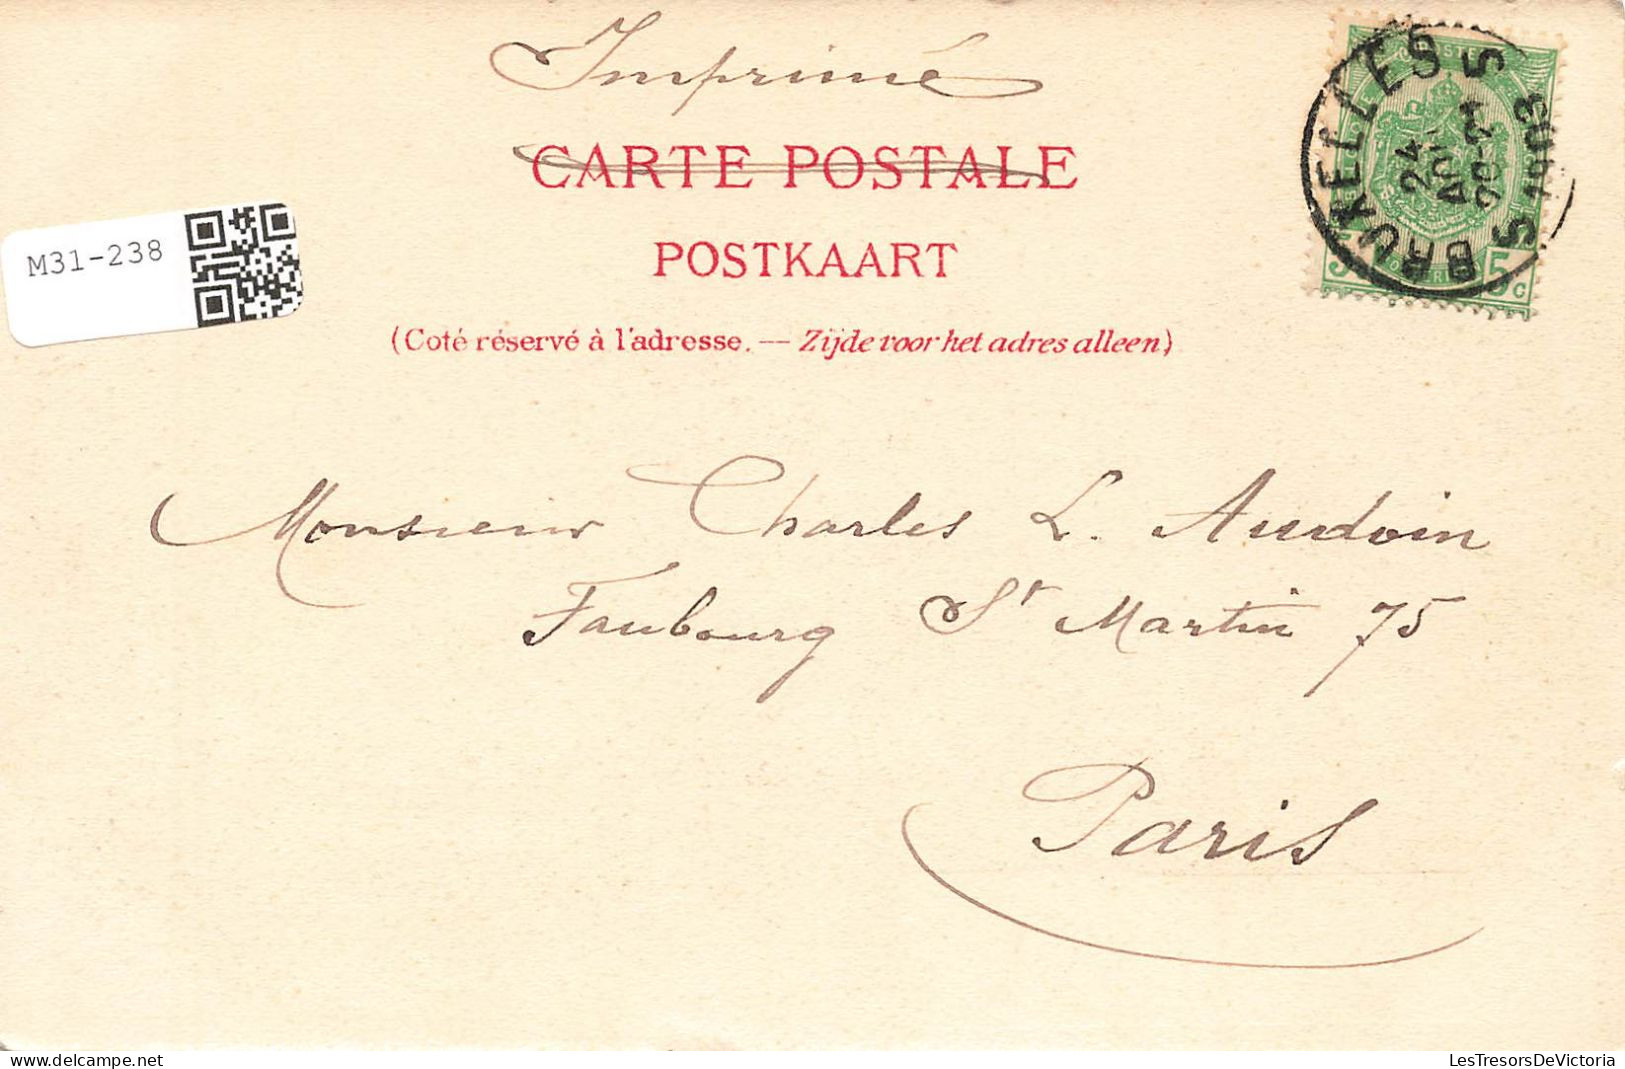 Imprimé
CARTE POSTALE
POSTKAART
(Coté réservé à l'adresse. — Zijde voor het adres alleen)
M31-238
BRUXELLES 5
24
AOUT
1903
5 5 C
Monsieur Charles L. Audoin
Faubourg St Martin 75
Paris
LesTresorsDeVictoria